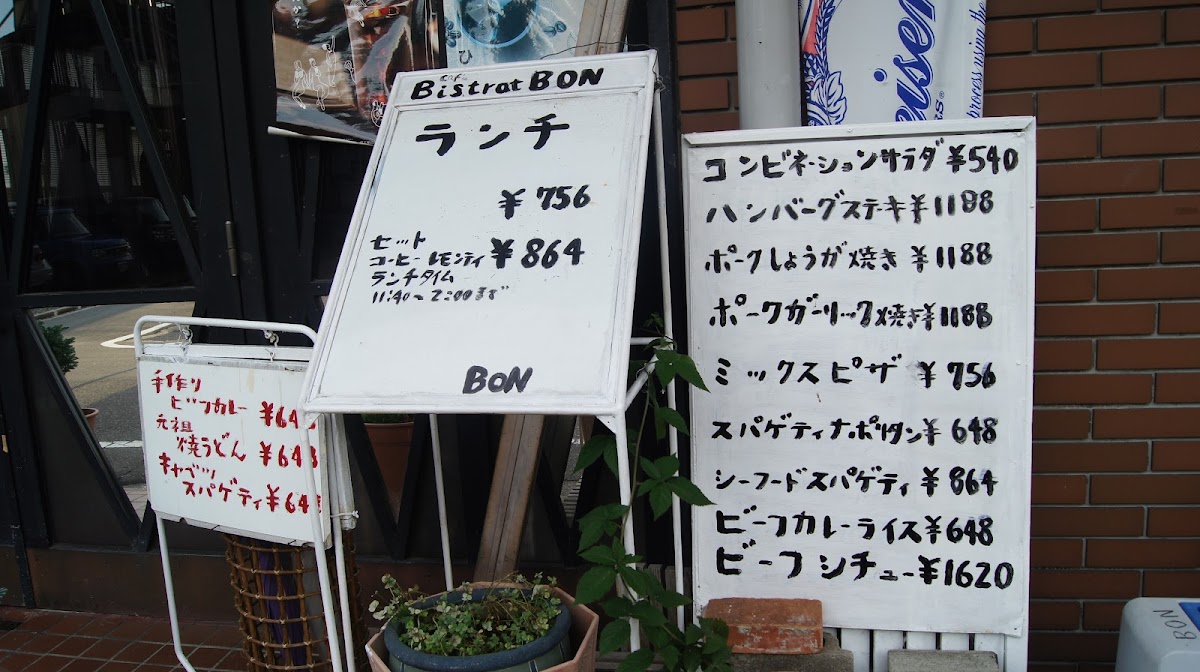 Cafe
Bistrot BON
ランチ
¥756
セット
コーヒー レモンティ ¥864
ランチタイム
11:40~2:00まで
BON
手作り
ビーフカレー ¥648
元祖
焼うどん ¥648
キャベツ
スパゲティ ¥648
コンビネーションサラダ ¥540
ハンバーグステーキ ¥1188
ポークしょうが焼き ¥1188
ポークガーリック焼き ¥1188
ミックスピザ ¥756
スパゲティナポリタン ¥648
シーフードスパゲティ ¥864
ビーフカレーライス ¥648
ビーフシチュー ¥1620
process using the
BON